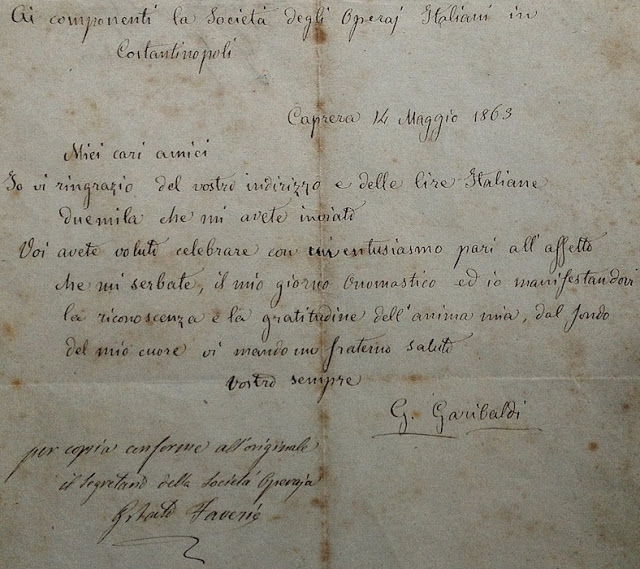 Ai componenti la Società degli Operaj Italiani in
Costantinopoli
Caprera 14 Maggio 1863
Miei cari amici
Io vi ringrazio del vostro indirizzo e delle lire Italiane
duemila che mi avete inviato
Voi avete voluto celebrare con un entusiasmo pari all'affetto
che mi serbate, il mio giorno Onomastico ed io manifestandovi
la riconoscenza e la gratitudine dell'anima mia, dal fondo
del mio cuore vi mando un fraterno saluto
Vostro sempre
G. Garibaldi
per copia conforme all'originale
il Segretario della Società Operaja